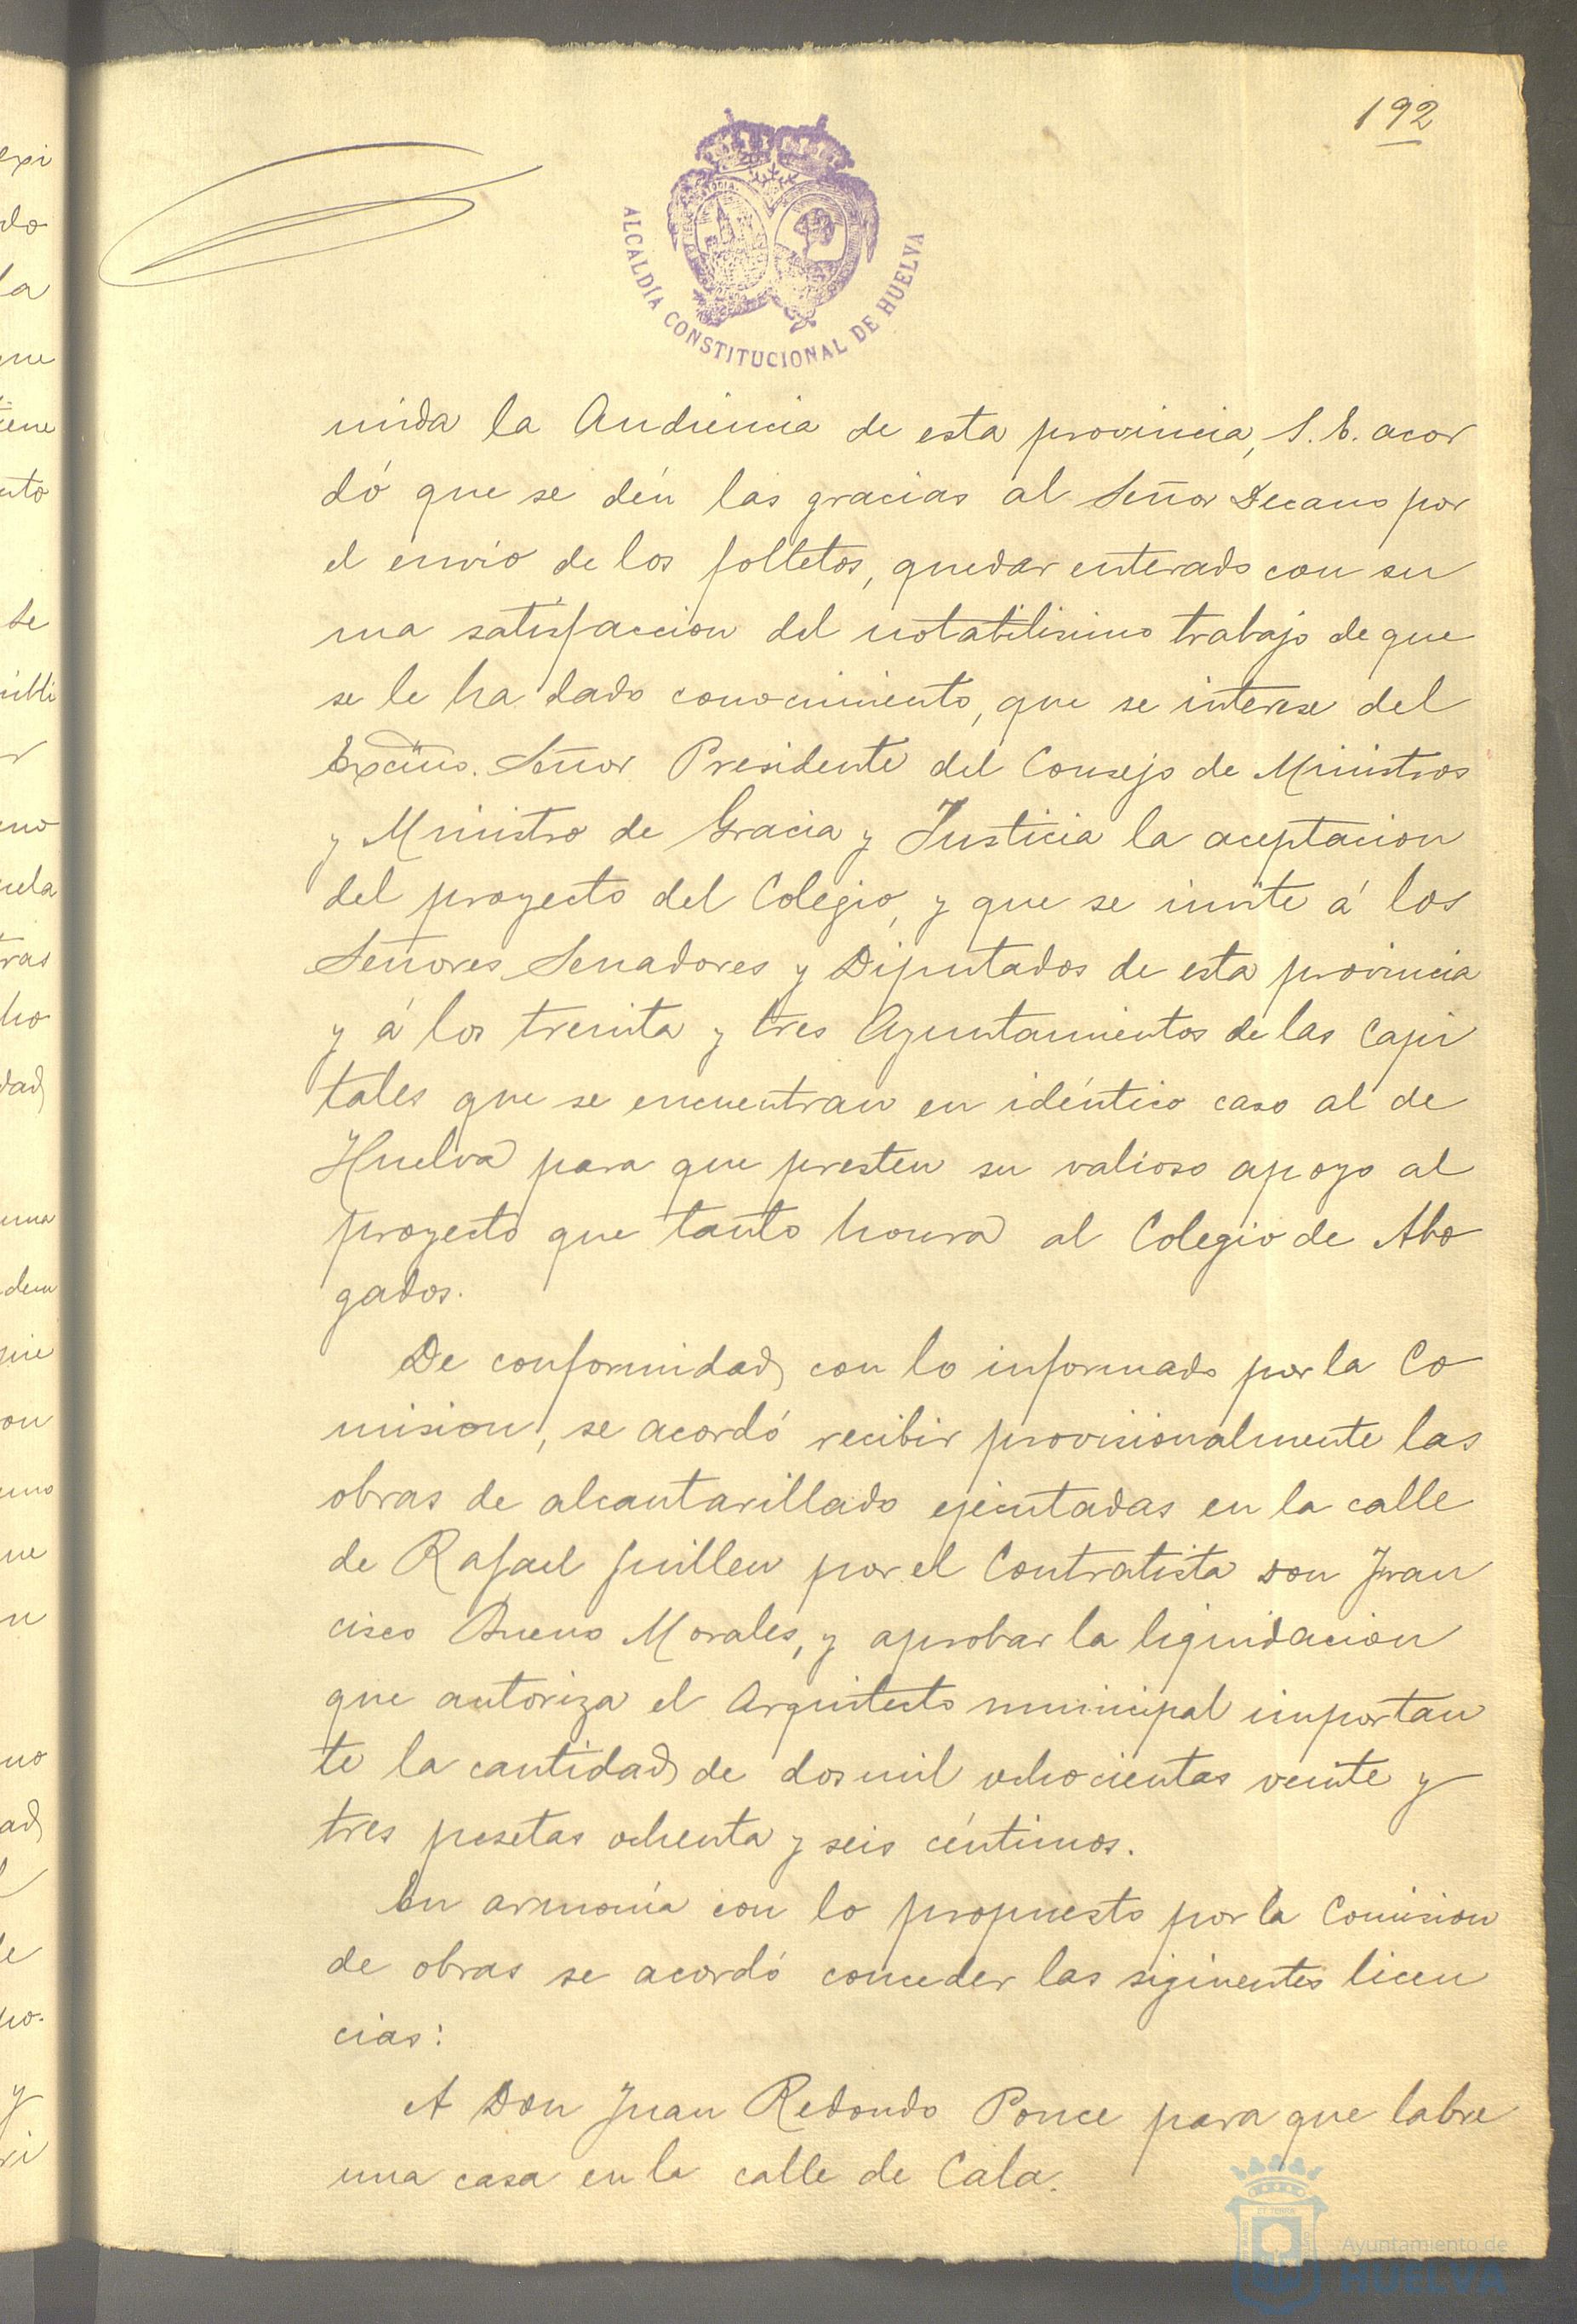 192
ALCALDÍA CONSTITUCIONAL DE HUELVA
nida la Audiencia de esta provincia, S. E. acor
dó que se dén las gracias al Señor Decano por
el envio de los folletos, quedar enterado con su
ma satisfaccion del notabilisimo trabajo de que
se le ha dado conocimiento, que se interese del
Excmo. Señor Presidente del Consejo de Ministros
y Ministro de Gracia y Justicia la aceptacion
del proyecto del Colegio, y que se invite á los
Señores Senadores y Diputados de esta provincia
y á los treinta y tres Ayuntamientos de las Capi
tales que se encuentran en idéntico caso al de
Huelva para que presten su valioso apoyo al
proyecto que tanto honra al Colegio de Abo
gados.
De conformidad con lo informado por la Co
mision, se acordó recibir provisionalmente las
obras de alcantarillado ejecutadas en la calle
de Rafael Guillen por el Contratista Don Fran
cisco Bueno Morales, y aprobar la liquidacion
que autoriza el Arquitecto municipal importan
te la cantidad de dos mil ochocientas veinte y
tres pesetas ochenta y seis céntimos.
En armonía con lo propuesto por la Comision
de obras se acordó conceder las siguientes licen
cias:
A Don Juan Redondo Ponce para que labre
una casa en la calle de Cala.
Ayuntamiento de
HUELVA